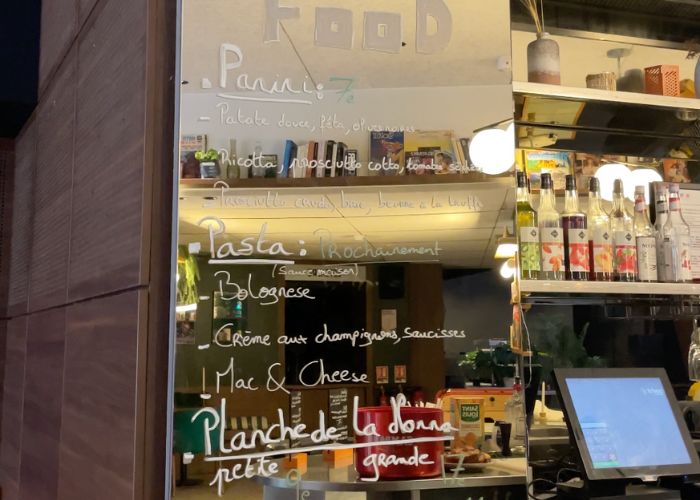 FOOD
- Panini : 7€
- Patate douce, féta, olives noires
- Ricotta, prosciutto cotto, tomates séchées
- Prosciutto crudo, brie, beurre à la truffe
- Pasta : Prochainement
(sauce maison)
- Bolognese
- Crème aux champignons, saucisses
! Mac & Cheese
- Planche de la Donna
petite 9€ grande 17€
SAINT LOUIS